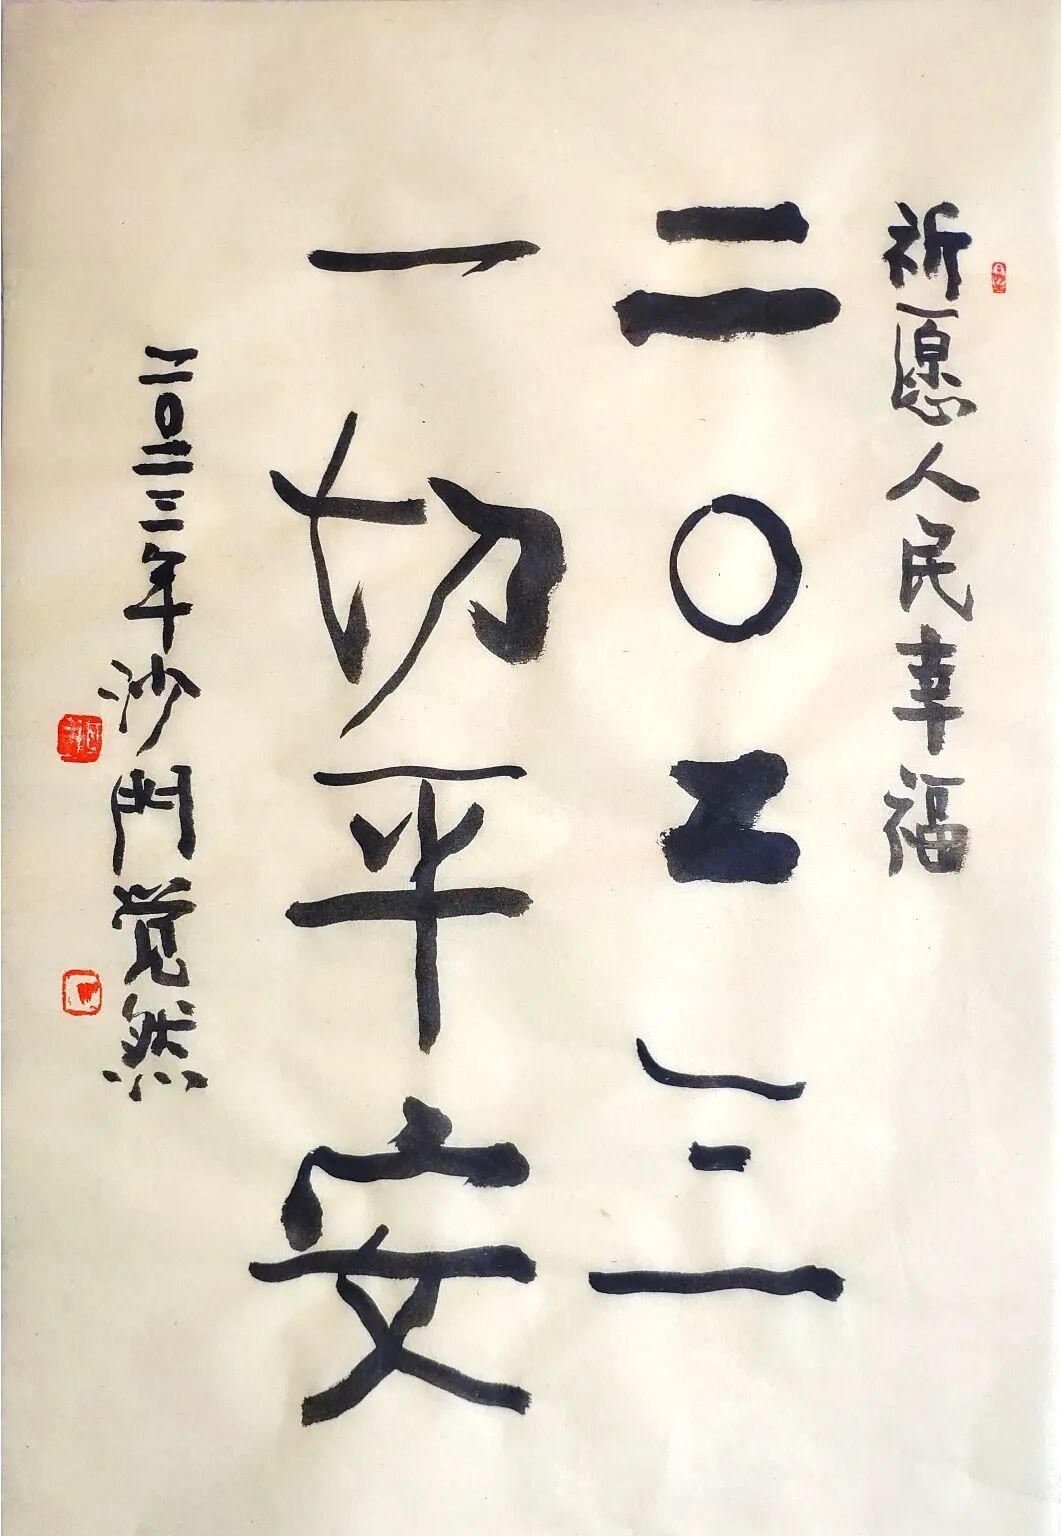 祈愿人民幸福
二〇二三
一切平安
二〇二三年沙门觉然